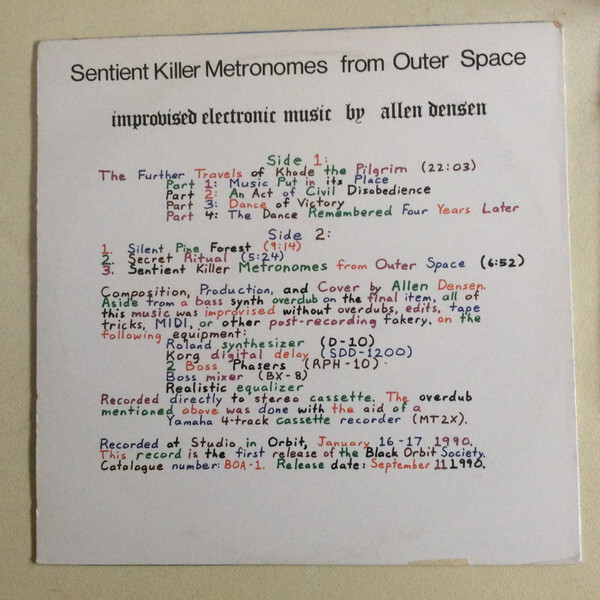 Sentient Killer Metronomes from Outer Space
improvised electronic music by allen densen
Side 1:
The Further Travels of Khode the Pilgrim (22:03)
Part 1: Music Put in its Place
Part 2: An Act of Civil Disobedience
Part 3: Dance of Victory
Part 4: The Dance Remembered Four Years Later
Side 2:
1. Silent Pine Forest (9:14)
2. Secret Ritual (5:24)
3. Sentient Killer Metronomes from Outer Space (6:52)
Composition, Production, and Cover by Allen Densen.
Aside from a bass synth overdub on the final item, all of
this music was improvised without overdubs, edits, tape
tricks, MIDI, or other post-recording fakery, on the
following equipment:
Roland synthesizer (D-10)
Korg digital delay (SDD-1200)
2 Boss Phasers (RPH-10)
Boss mixer (BX-8)
Realistic equalizer
Recorded directly to stereo cassette. The overdub
mentioned above was done with the aid of a
Yamaha 4-track cassette recorder (MT2X).
Recorded at Studio in Orbit, January 16-17 1990.
This record is the first release of the Black Orbit Society.
Catalogue number: BOA-1. Release date: September 11 1990.